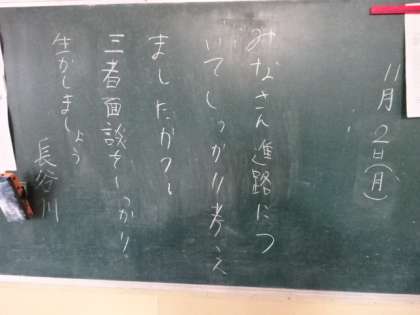 11月2日(月)
みなさん進路につ
いてしっかり考え
ましたか?
三者面談をしっかり
生かしましょう
長谷川